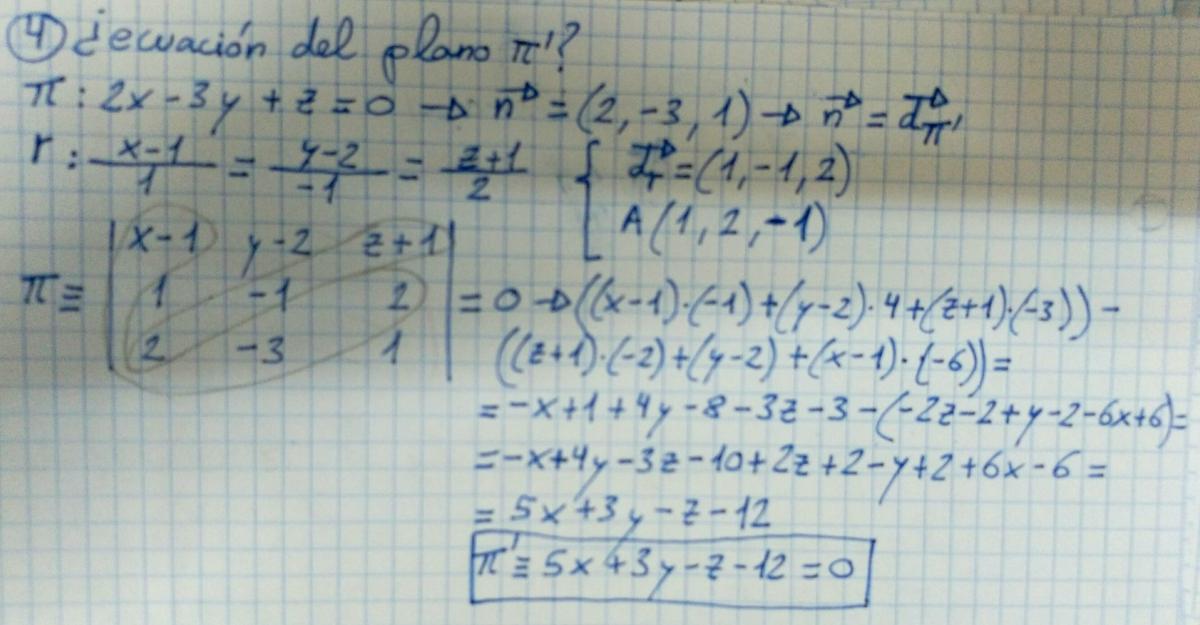 ④ ¿ecuación del plano π'?
π: 2x - 3y + z = 0 → n⃗ = (2, -3, 1) → n⃗ = d⃗π'
r: (x-1)/1 = (y-2)/-1 = (z+1)/2 { d⃗r = (1, -1, 2)
A(1, 2, -1)
π ≡ | x-1 y-2 z+1 |
| 1 -1 2 | = 0 → ((x-1)·(-1) + (y-2)·4 + (z+1)·(-3)) -
| 2 -3 1 | ((z+1)·(-2) + (y-2) + (x-1)·(-6)) =
= -x + 1 + 4y - 8 - 3z - 3 - (-2z - 2 + y - 2 - 6x + 6) =
= -x + 4y - 3z - 10 + 2z + 2 - y + 2 + 6x - 6 =
= 5x + 3y - z - 12
π' ≡ 5x + 3y - z - 12 = 0